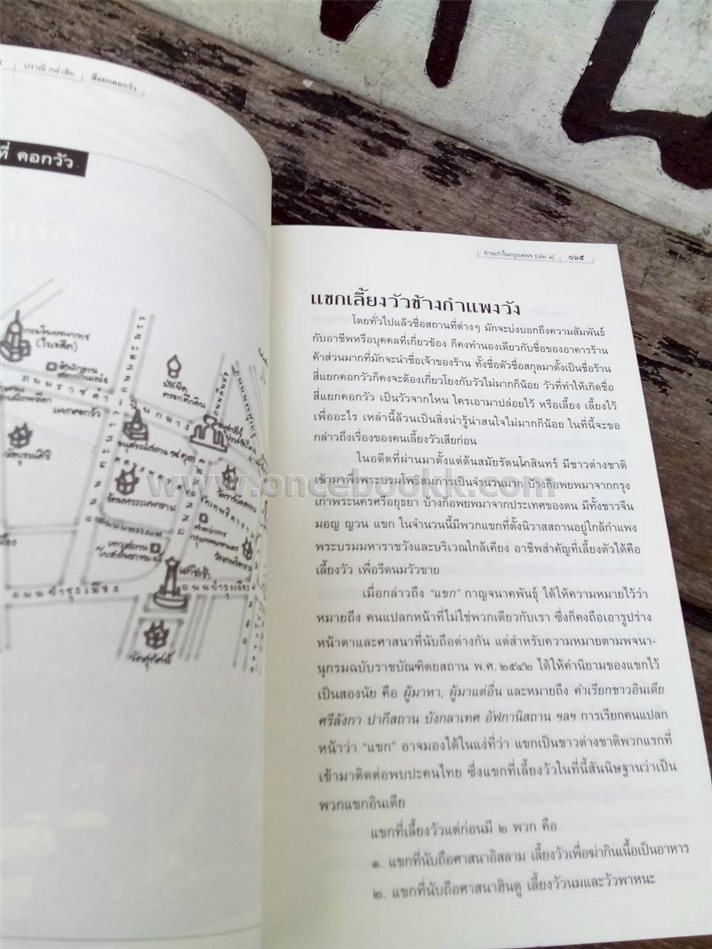 ปราณี กล่ำส้ม
สี่แยกคอกวัว
ที่ คอกวัว
(ในอดีต)
ถนนราชดำ
แยกคอกวัว
ถนนบำรุงเมือง
เสาชิงช้า
วัดสุทัศน์
www.oncebookk.com
ย่านเก่าในกรุงเทพฯ [เล่ม ๑] ๑๖๕
แขกเลี้ยงวัวข้างกำแพงวัง
โดยทั่วไปแล้วชื่อสถานที่ต่างๆ มักจะบ่งบอกถึงความสัมพันธ์
กับอาชีพหรือบุคคลที่เกี่ยวข้อง ก็คงทำนองเดียวกับชื่อของอาคารร้าน
ค้าส่วนมากที่มักจะนำชื่อเจ้าของร้าน ทั้งชื่อตัวชื่อสกุลมาตั้งเป็นชื่อร้าน
สี่แยกคอกวัวก็คงจะต้องเกี่ยวโยงกับวัวไม่มากก็น้อย วัวที่ทำให้เกิดชื่อ
สี่แยกคอกวัว เป็นวัวจากไหน ใครเอามาปล่อยไว้ หรือเลี้ยง เลี้ยงไว้
เพื่ออะไร เหล่านี้ล้วนเป็นสิ่งน่ารู้น่าสนใจไม่มากก็น้อย ในที่นี้จะขอ
กล่าวถึงเรื่องของคนเลี้ยงวัวเสียก่อน
ในอดีตที่ผ่านมาตั้งแต่ต้นสมัยรัตนโกสินทร์ มีชาวต่างชาติ
เข้ามาพึ่งพระบรมโพธิสมภารเป็นจำนวนมาก บ้างก็อพยพมาจากกรุง
เก่าพระนครศรีอยุธยา บ้างก็อพยพมาจากประเทศของตน มีทั้งชาวจีน
มอญ ญวน แขก ในจำนวนนี้มีพวกแขกที่ตั้งนิวาสถานอยู่ใกล้กำแพง
พระบรมมหาราชวังและบริเวณใกล้เคียง อาชีพสำคัญที่เลี้ยงตัวได้คือ
เลี้ยงวัว เพื่อรีดนมวัวขาย
เมื่อกล่าวถึง “แขก” กาญจนาคพันธุ์ ได้ให้ความหมายไว้ว่า
หมายถึง คนแปลกหน้าที่ไม่ใช่พวกเดียวกับเรา ซึ่งก็คงถือเอารูปร่าง
หน้าตาและศาสนาที่นับถือต่างกัน แต่สำหรับความหมายตามพจนา-
นุกรมฉบับราชบัณฑิตยสถาน พ.ศ. ๒๕๔๒ ได้ให้คำนิยามของแขกไว้
เป็นสองนัย คือ ผู้มาหา, ผู้มาแต่อื่น และหมายถึง คำเรียกชาวอินเดีย
ศรีลังกา ปากีสถาน บังกลาเทศ อัฟกานิสถาน ฯลฯ การเรียกคนแปลก
หน้าว่า “แขก” อาจมองได้ในแง่ที่ว่า แขกเป็นชาวต่างชาติพวกแรกที่
เข้ามาติดต่อพบปะคนไทย ซึ่งแขกที่เลี้ยงวัวในที่นี้สันนิษฐานว่าเป็น
พวกแขกอินเดีย
แขกที่เลี้ยงวัวแต่ก่อนมี ๒ พวก คือ
๑. แขกที่นับถือศาสนาอิสลาม เลี้ยงวัวเพื่อฆ่ากินเนื้อเป็นอาหาร
๒. แขกที่นับถือศาสนาฮินดู เลี้ยงวัวนมและวัวพาหนะ